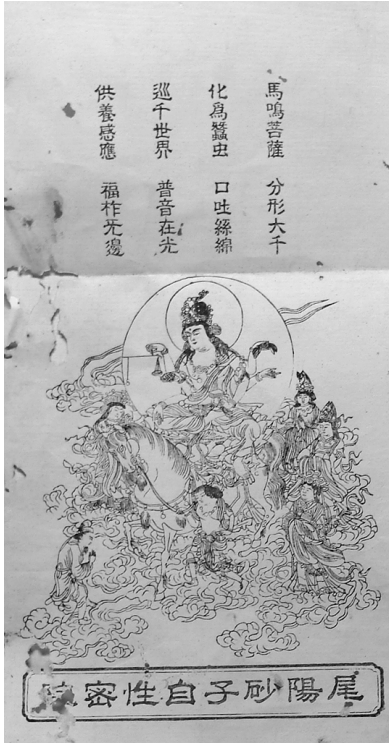 馬鳴菩薩　分形大千
化爲蠶虫　口吐絲綿
巡千世界　普音在光
供養感應　福柞无邊
尾陽砂子自性密院